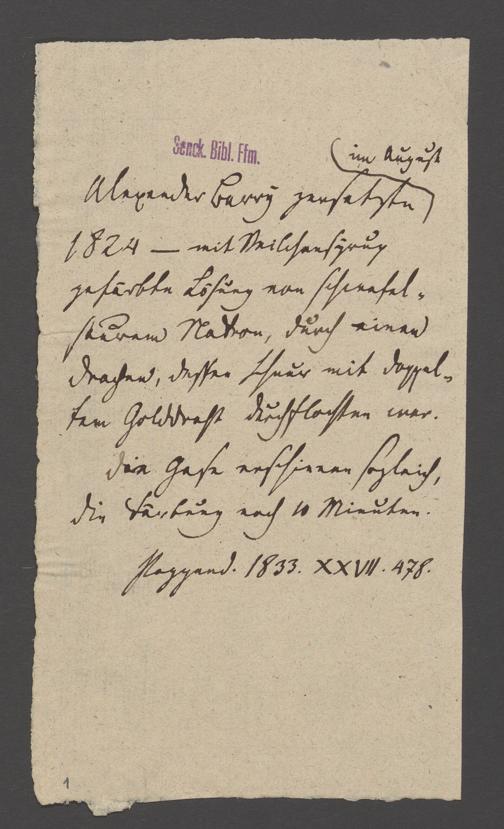 Senck. Bibl. Ffm.
(im August
Alexander Barry zersetzte)
1824 — mit Veilchensyrup
gefärbte Lösung von schwefel-
saurem Natron, durch einen
Drachen, dessen Schnur mit doppel-
tem Golddraht durchflochten war.
Die Gase erschienen sogleich,
die Färbung nach 10 Minuten.
Poggend. 1833. XXVII. 478.
1